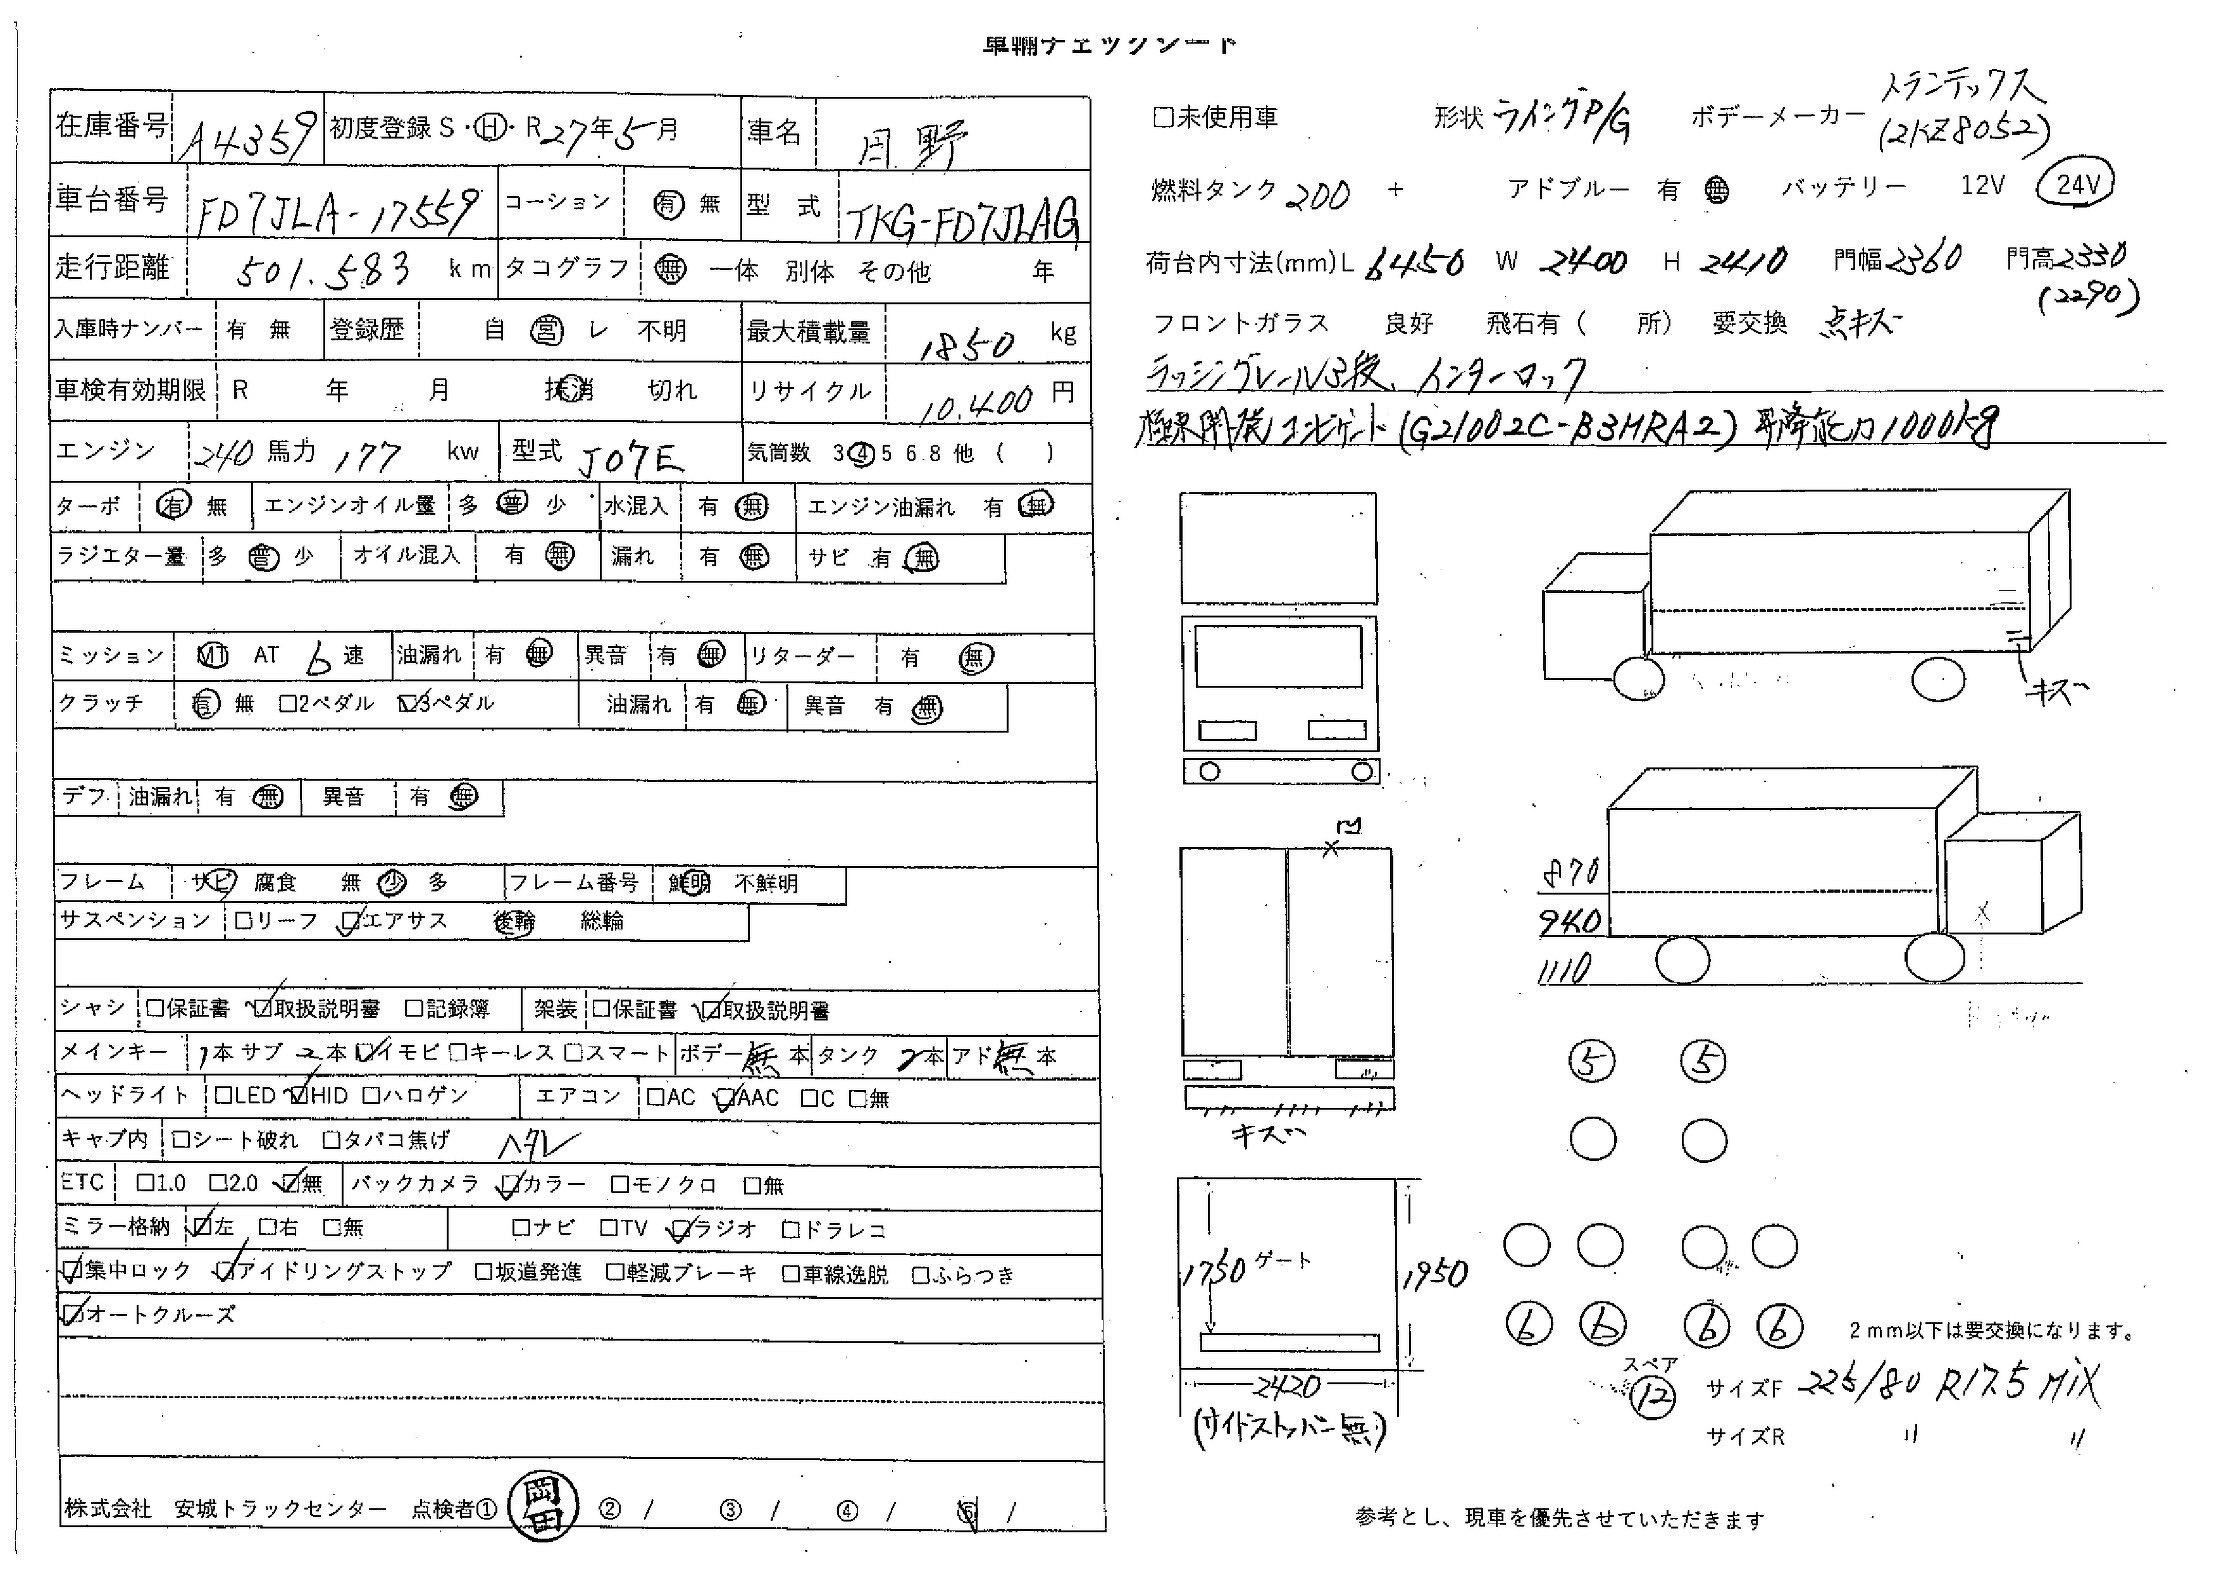 車輛チェックシート
在庫番号 A4359 初度登録 S・H・R 27年 5月 車名 日野
車台番号 FD7JLA-17559 コーション 有 無 型 式 TKG-FD7JLAG
走行距離 501.583 km タコグラフ 無 一体 別体 その他 年
入庫時ナンバー 有 無 登録歴 自 営 レ 不明 最大積載量 1850 kg
車検有効期限 R 年 月 抹消 切れ リサイクル 10.400 円
エンジン 240 馬力 177 kw 型式 J07E 気筒数 3 4 5 6.8 他 ( )
ターボ 有 無 エンジンオイル量 多 普 少 水混入 有 無 エンジン油漏れ 有 無
ラジエター量 多 普 少 オイル混入 有 無 漏れ 有 無 サビ 有 無
ミッション MT AT 6 速 油漏れ 有 無 異音 有 無 リターダー 有 無
クラッチ 有 無 □2ペダル ☑3ペダル 油漏れ 有 無 異音 有 無
デフ 油漏れ 有 無 異音 有 無
フレーム サビ 腐食 無 少 多 フレーム番号 鮮明 不鮮明
サスペンション □リーフ ☑エアサス 後輪 総輪
シャシ □保証書 ☑取扱説明書 □記録簿 架装 □保証書 ☑取扱説明書
メインキー 1本 サブ 2本 ☑イモビ □キーレス □スマート ボデー 無 本 タンク 2本 アド 無 本
ヘッドライト □LED ☑HID □ハロゲン エアコン □AC ☑AAC □C □無
キャブ内 □シート破れ □タバコ焦げ ヘタレ
ETC □1.0 □2.0 ☑無 バックカメラ ☑カラー □モノクロ □無
ミラー格納 ☑左 □右 □無 □ナビ □TV ☑ラジオ □ドラレコ
☑集中ロック ☑アイドリングストップ □坂道発進 □軽減ブレーキ □車線逸脱 □ふらつき
☑オートクルーズ
株式会社 安城トラックセンター 点検者① 岡田 ② / ③ / ④ / ⑤ /
□未使用車 形状 ウイングP/G ボデーメーカー トランテックス
(2KZ8052)
燃料タンク 200 + アドブルー 有 無 バッテリー 12V 24V
荷台内寸法(mm) L 6450 W 2400 H 2410 門幅 2360 門高 2330
(2290)
フロントガラス 良好 飛石有 ( 所) 要交換 点キズ
ラッシングレール3段、インターロック
極東開発パワーゲート(G21002C-B3HRA2) 昇降能力1000kg
キズ
凹
870
940
1110
キズ
⑤ ⑤
1750 ゲート 1950
⑥ ⑥ ⑥ ⑥
2mm以下は要交換になります。
スペア
⑫ サイズF 225/80 R17.5 MIX
2420
(サイドストッパー無)
サイズR 〃 〃
参考とし、現車を優先させていただきます